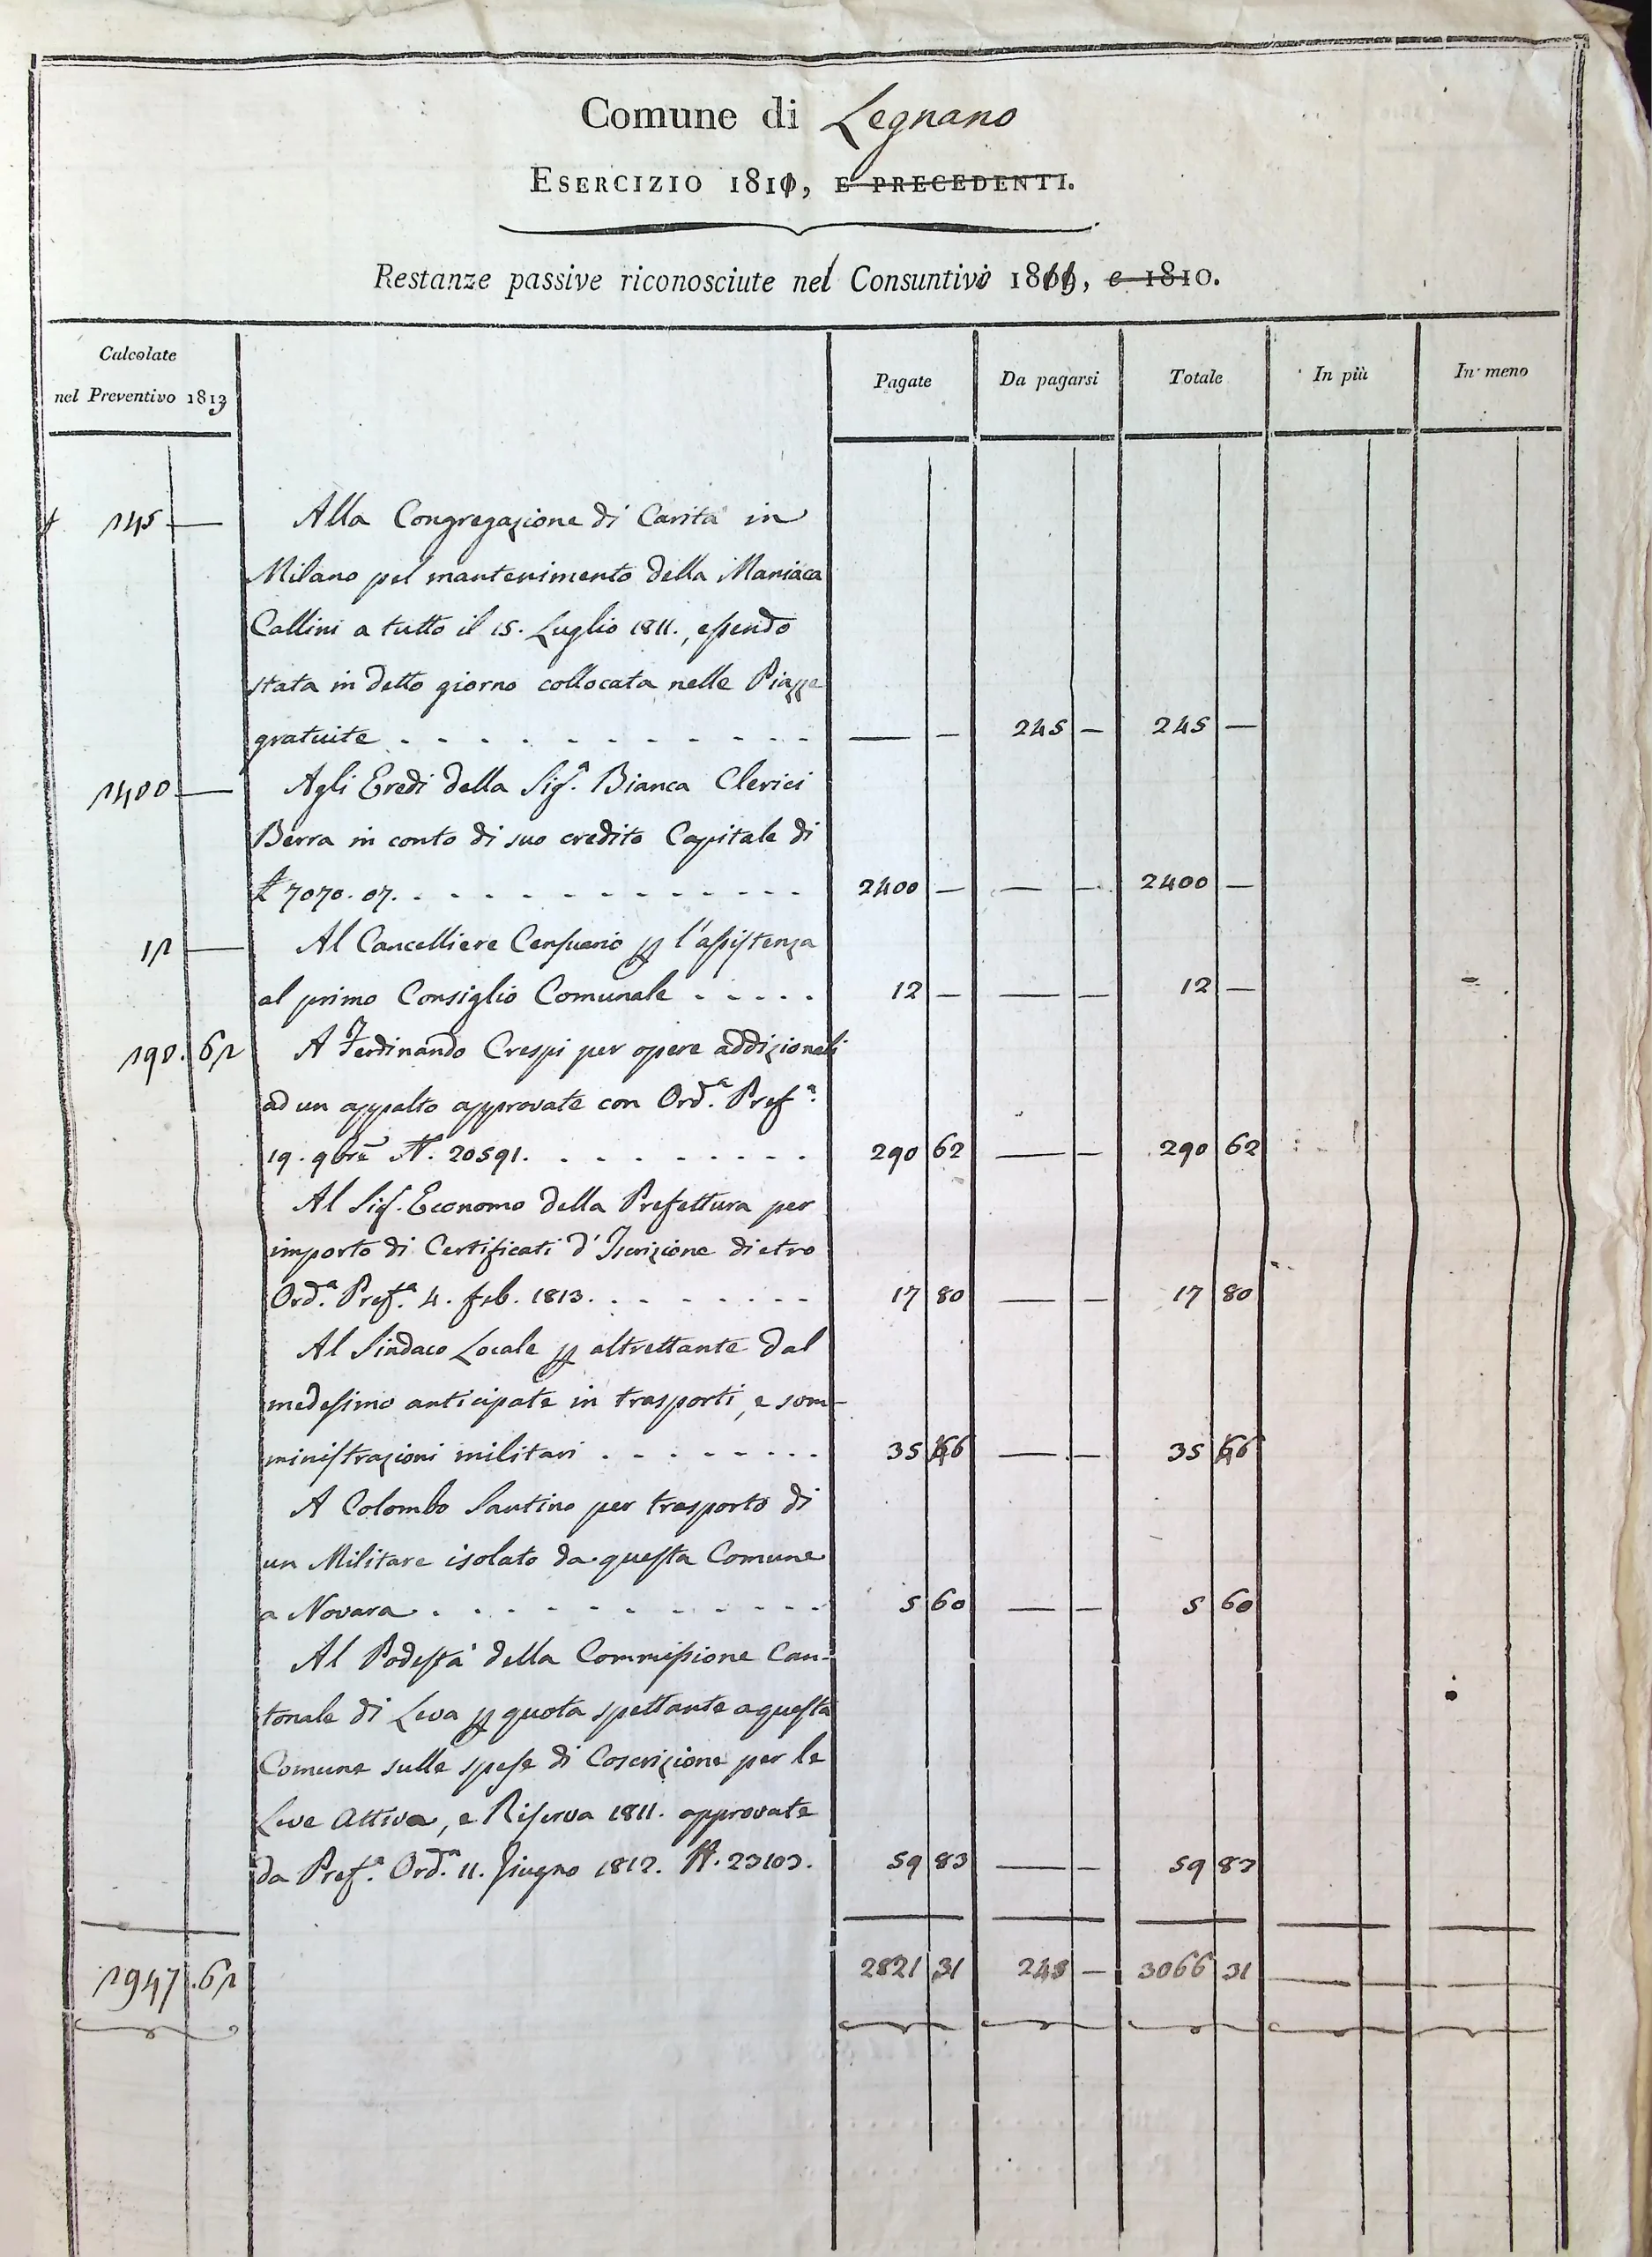 Comune di Legnano
ESERCIZIO 1811, E PRECEDENTI.
Restanze passive riconosciute nel Consuntivo 1811, e 1810.
Calcolate
nel Preventivo 1813
Pagate
Da pagarsi
Totale
In più
In meno
£ 245 — Alla Congregazione di Carità in
Milano pel mantenimento della Maniaca
Callini a tutto il 15. Luglio 1811., essendo
stata in detto giorno collocata nelle Piazze
gratuite - - - — — 245 — 245 —
2400 — Agli Eredi della Sig.ª Bianca Clerici
Berra in conto di suo credito Capitale di
£ 7070. 07. - - - 2400 — — — 2400 —
12 — Al Cancelliere Censuario p l'assistenza
al primo Consiglio Comunale - - - 12 — — — 12 —
290. 62 A Ferdinando Crespi per opere addizionali
ad un appalto approvate con Ord.ª Pref.ª
19. 9bre N. 20591. - - - 290 62 — — 290 62
Al Sig. Economo della Prefettura per
importo di Certificati d'Iscrizione dietro
Ord.ª Pref.ª 4. feb. 1813. - - - 17 80 — — 17 80
Al Sindaco Locale p altrettante dal
medesimo anticipate in trasporti, e som-
ministrazioni militari - - - 35 46 — — 35 46
A Colombo Santino per trasporto di
un Militare isolato da questa Comune
a Novara - - - 5 60 — — 5 60
Al Podestà della Commissione Can-
tonale di Leva p quota spettante a questa
Comune sulle spese di Coscrizione per le
Leve Attiva, e Riserva 1811. approvate
da Pref.ª Ord.ª 11. Giugno 1812. N. 23103. 59 83 — — 59 83
2947. 62 2821 31 245 — 3066 31 — — — —